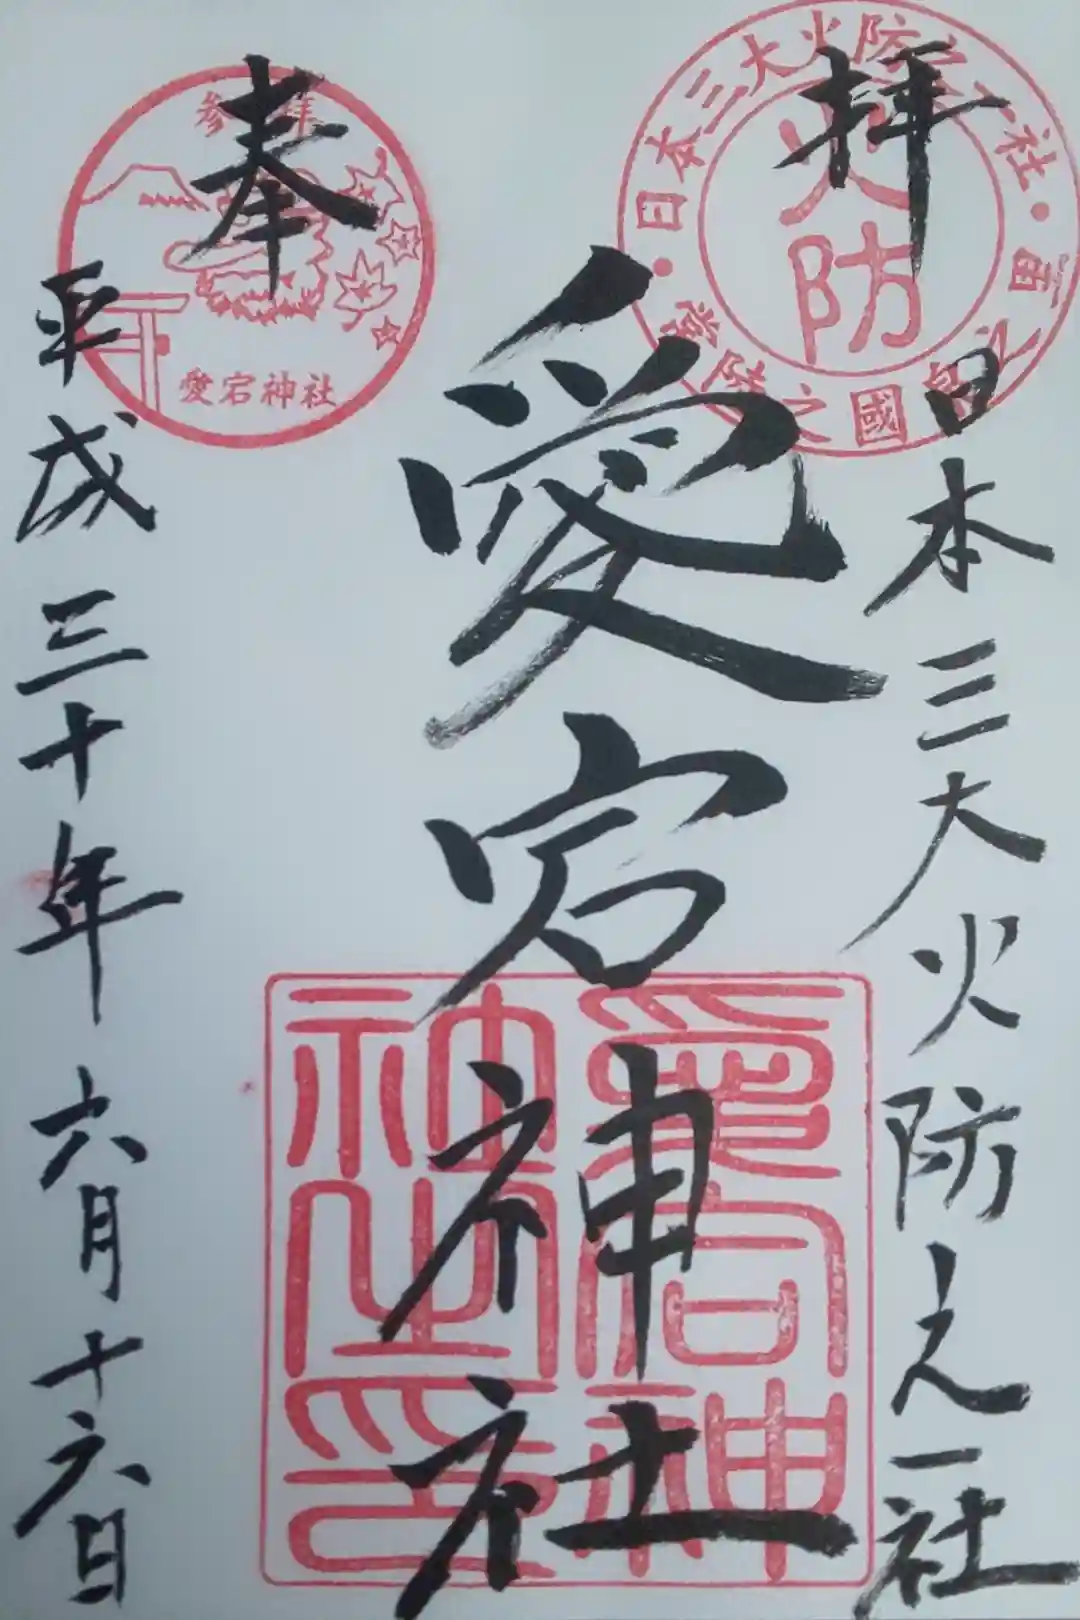 奉拝
日本三大火防之一社
愛宕神社
平成三十年六月十六日
日本三大火防之一社・西之
常陸之國
火防
参拝
愛宕神社
愛宕神
社之印